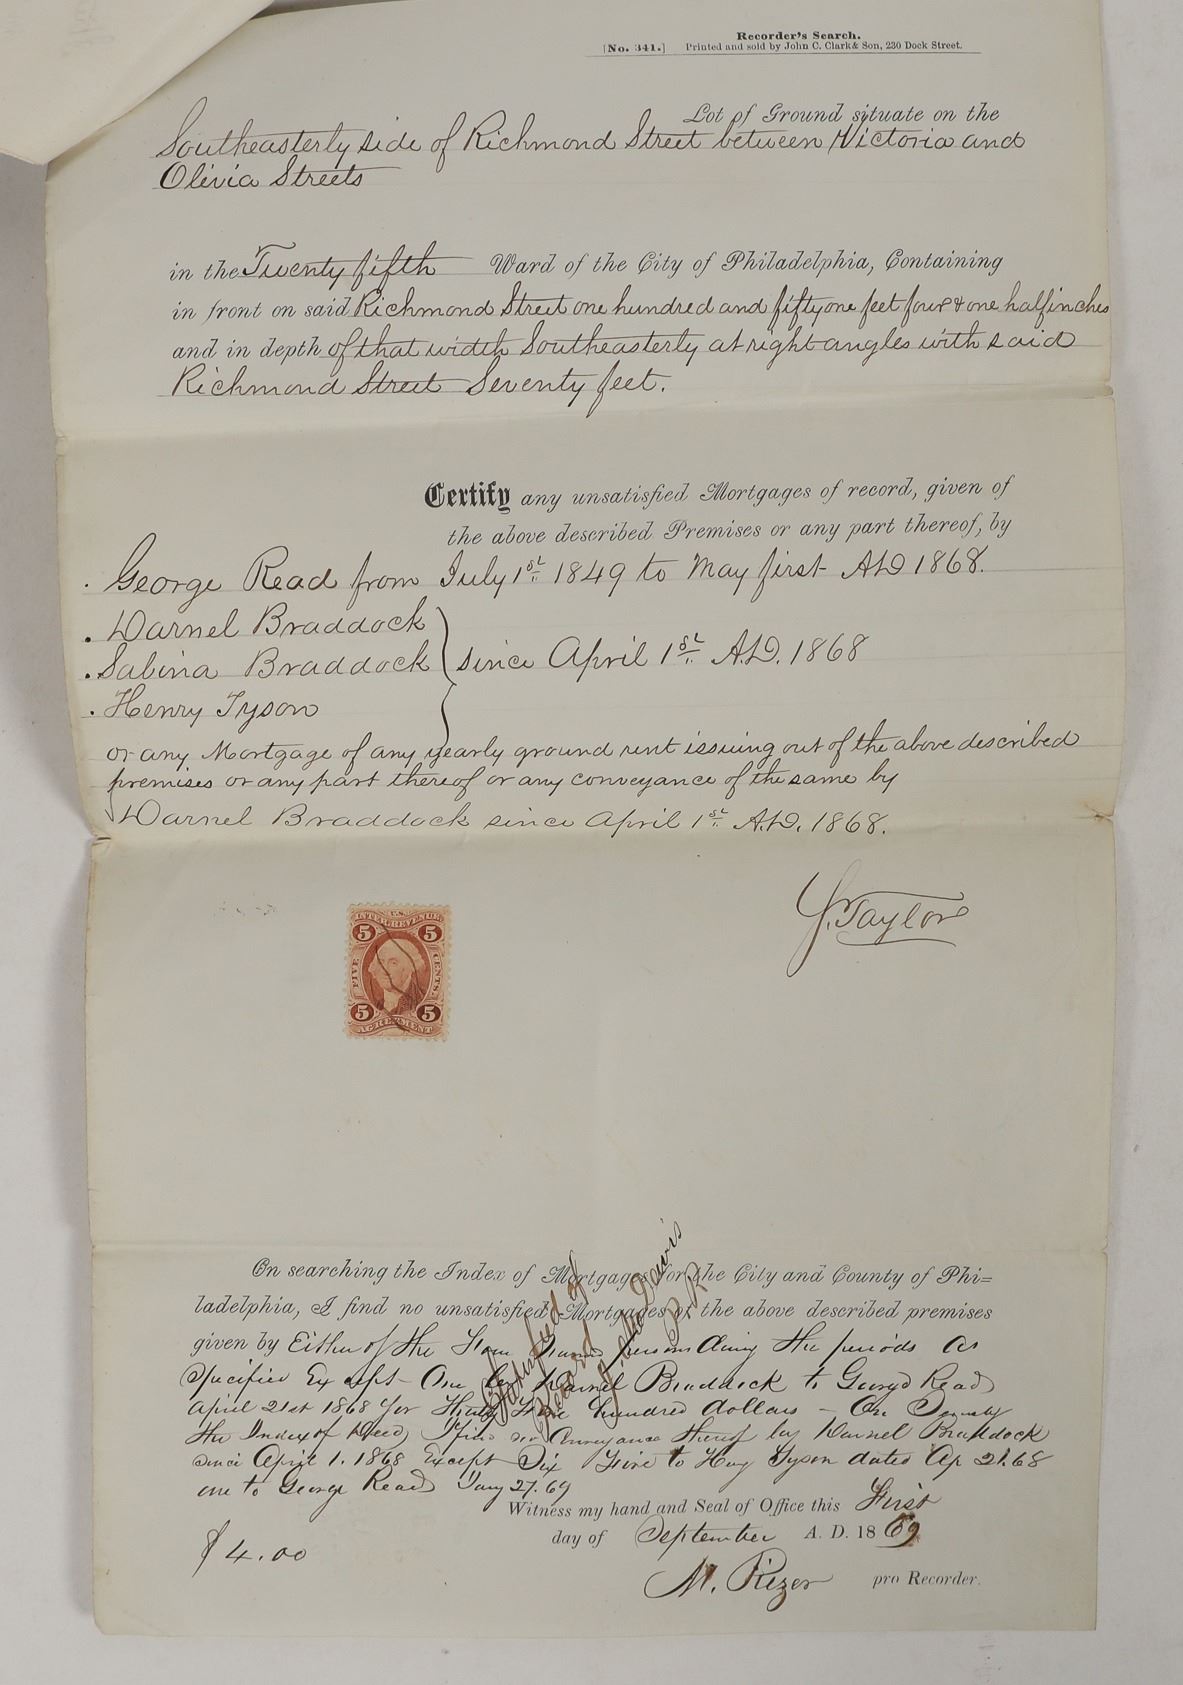 Recorder's Search.
[No. 341.] Printed and sold by John C. Clark & Son, 230 Dock Street.
Lot of Ground situate on the
Southeasterly side of Richmond Street between Victoria and
Olivia Streets
in the Twenty fifth Ward of the City of Philadelphia, Containing
in front on said Richmond Street one hundred and fifty one feet four & one half inches
and in depth of that width Southeasterly at right angles with said
Richmond Street Seventy feet.
Certify any unsatisfied Mortgages of record, given of
the above described Premises or any part thereof, by
George Read from July 1st 1849 to May first AD 1868.
Darnel Braddock
Sabina Braddock since April 1st A.D. 1868
Henry Tyson
or any Mortgage of any yearly ground rent issuing out of the above described
premises or any part thereof or any conveyance of the same by
Darnel Braddock since April 1st A.D. 1868.
J. Taylor
U.S.
INTER. REVENUE.
5 5
FIVE CENTS.
5 5
AGREEMENT
On searching the Index of Mortgages for the City and County of Phi=
ladelphia, I find no unsatisfied Mortgages of the above described premises
given by Either of the persons during the periods as
Specified Except One by Darnel Braddock to George Read
April 21st 1868 for hundred dollars - On
the Index of Deeds I find no Conveyance thereof by Darnel Braddock
since April 1. 1868 Except Six to Hny Tyson dated Ap 21.68
one to George Read Jany 27.69
Satisfied of
Record
Davis
Witness my hand and Seal of Office this First
day of September A. D. 1869
$4.00
M. Rizer pro Recorder.